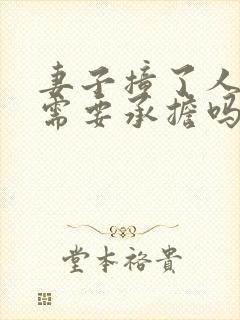 妻子撞了人
需要承擔吗
堂本裕貴